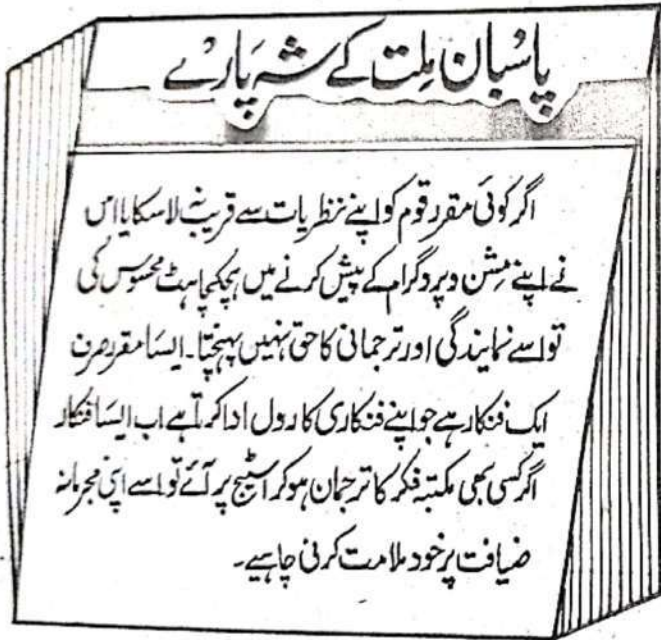 پاسبان ملت کے شہ پارے
اگر کوئی مقرر قوم کو اپنے نظریات سے قریب نہ لاسکا یا اس
نے اپنے مشن و پروگرام کے پیش کرنے میں ہچکچاہٹ محسوس کی
تو اسے نمایندگی اور ترجمانی کا حق نہیں پہنچتا۔ ایسا مقرر صرف
ایک فنکار ہے جو اپنے فنکاری کا رول ادا کرتا ہے اب ایسا فنکار
اگر کسی بھی مکتبہ فکر کا ترجمان ہو کر اسٹیج پر آئے تو اسے اپنی مجرمانہ
ضیافت پر خود ملامت کرنی چاہیے۔